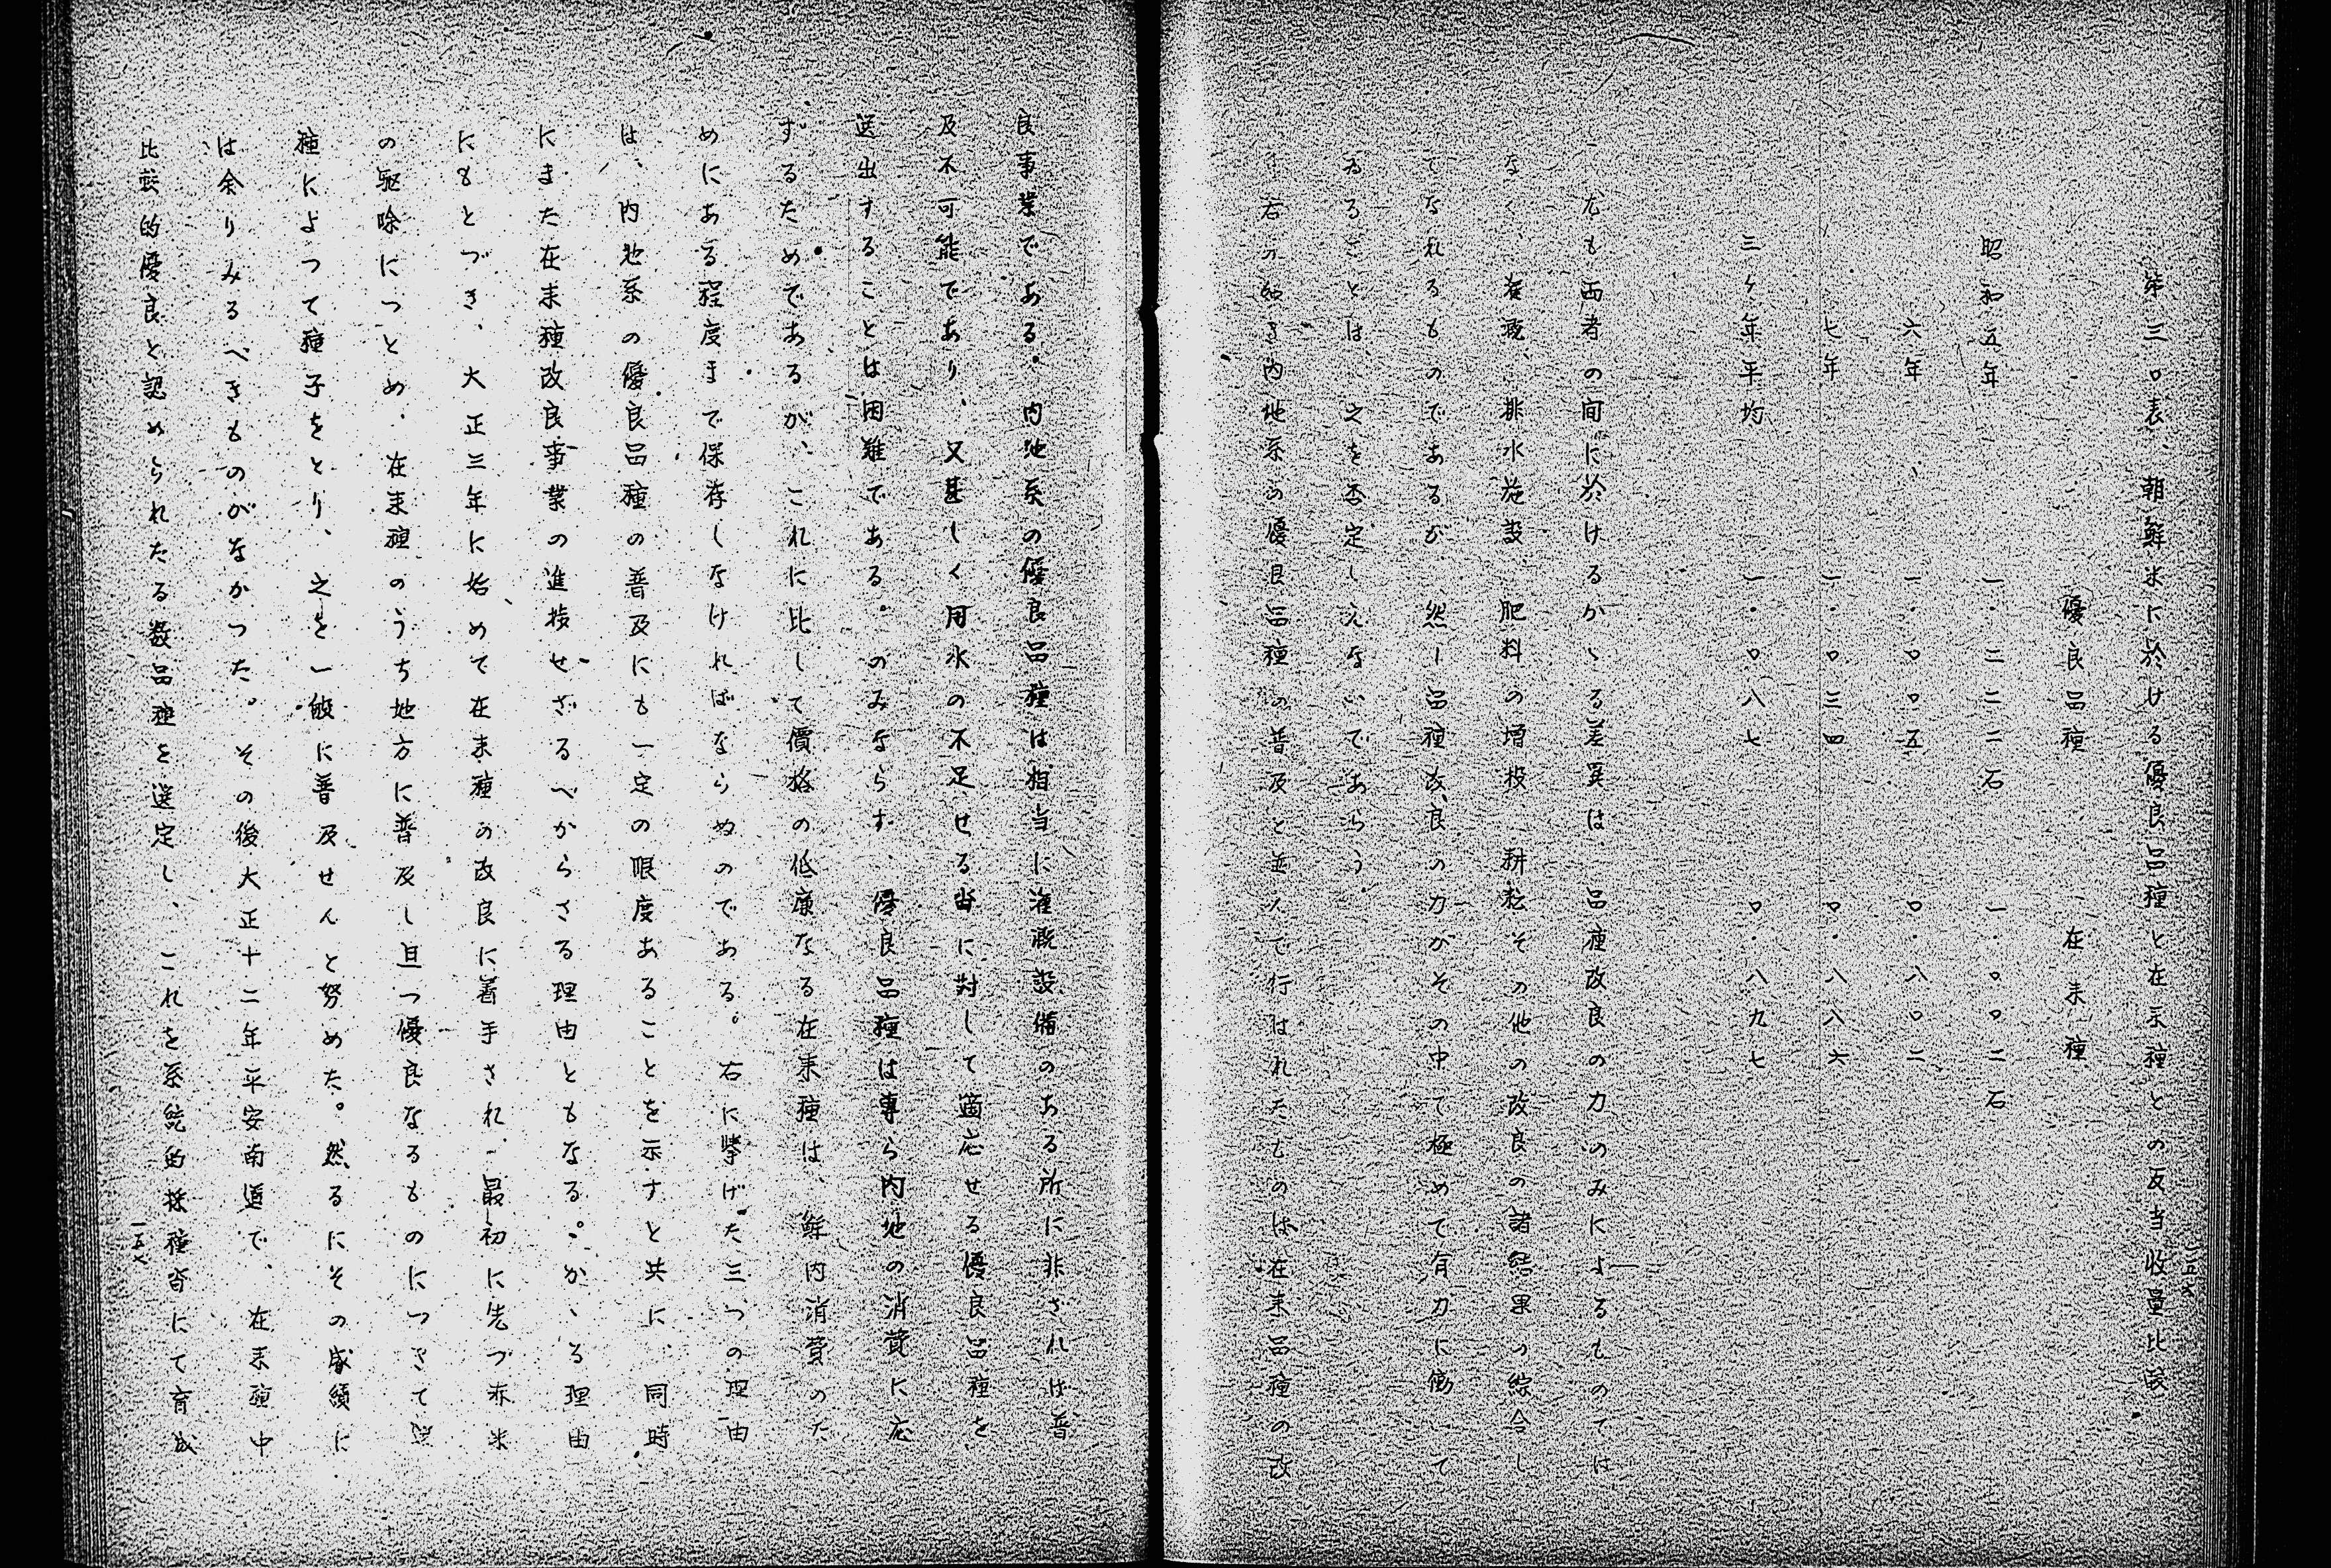 第三〇表、朝鮮米に於ける優良品種と在来種との反当收量比較
優良品種 在来種
昭和五年 一・三三二石 一・〇〇二石
六年 一・〇〇五 〇・八〇二
七年 一・〇三四 〇・八八六
三ヶ年平均 一・〇八七 〇・八九七
尤も両者の間に於けるかゝる差異は、品種改良の力のみによるものでは
なく、灌漑、排水施設、肥料の増投、耕耘その他の改良の諸結果の綜合し
てなれるものであるが、然し品種改良の力がその中で極めて有力に働いて
ゐることは、之を否定しえないであらう。
右の如き内地系の優良品種の普及と並んで行はれたものは在来品種の改
良事業である。内地系の優良品種は相当に灌漑設備のある所に非ざれば普
及不可能であり、又甚しく用水の不足せる畓に対して適応せる優良品種を
送出することは困難である。のみならず、優良品種は専ら内地の消費に応
ずるためであるが、これに比して價格の低廉なる在来種は、鮮内消費のた
めにある程度まで保存しなければならぬのである。右に挙げた三つの理由
は、内地系の優良品種の普及にも一定の限度あることを示すと共に、同時
にまた在来種改良事業の進捗せざるべからざる理由ともなる。かゝる理由
にもとづき、大正三年に始めて在来種の改良に着手され、最初に先づ赤米
の駆除につとめ、在来種のうち地方に普及し且つ優良なるものにつきて
種によつて種子をとり、之を一般に普及せんと努めた。然るにその成績に
は余りみるべきものがなかつた。その後大正十二年平安南道で、在来種中
比較的優良と認められたる数品種を選定し、これを系統的採種畓にて育成
一五六
一五七